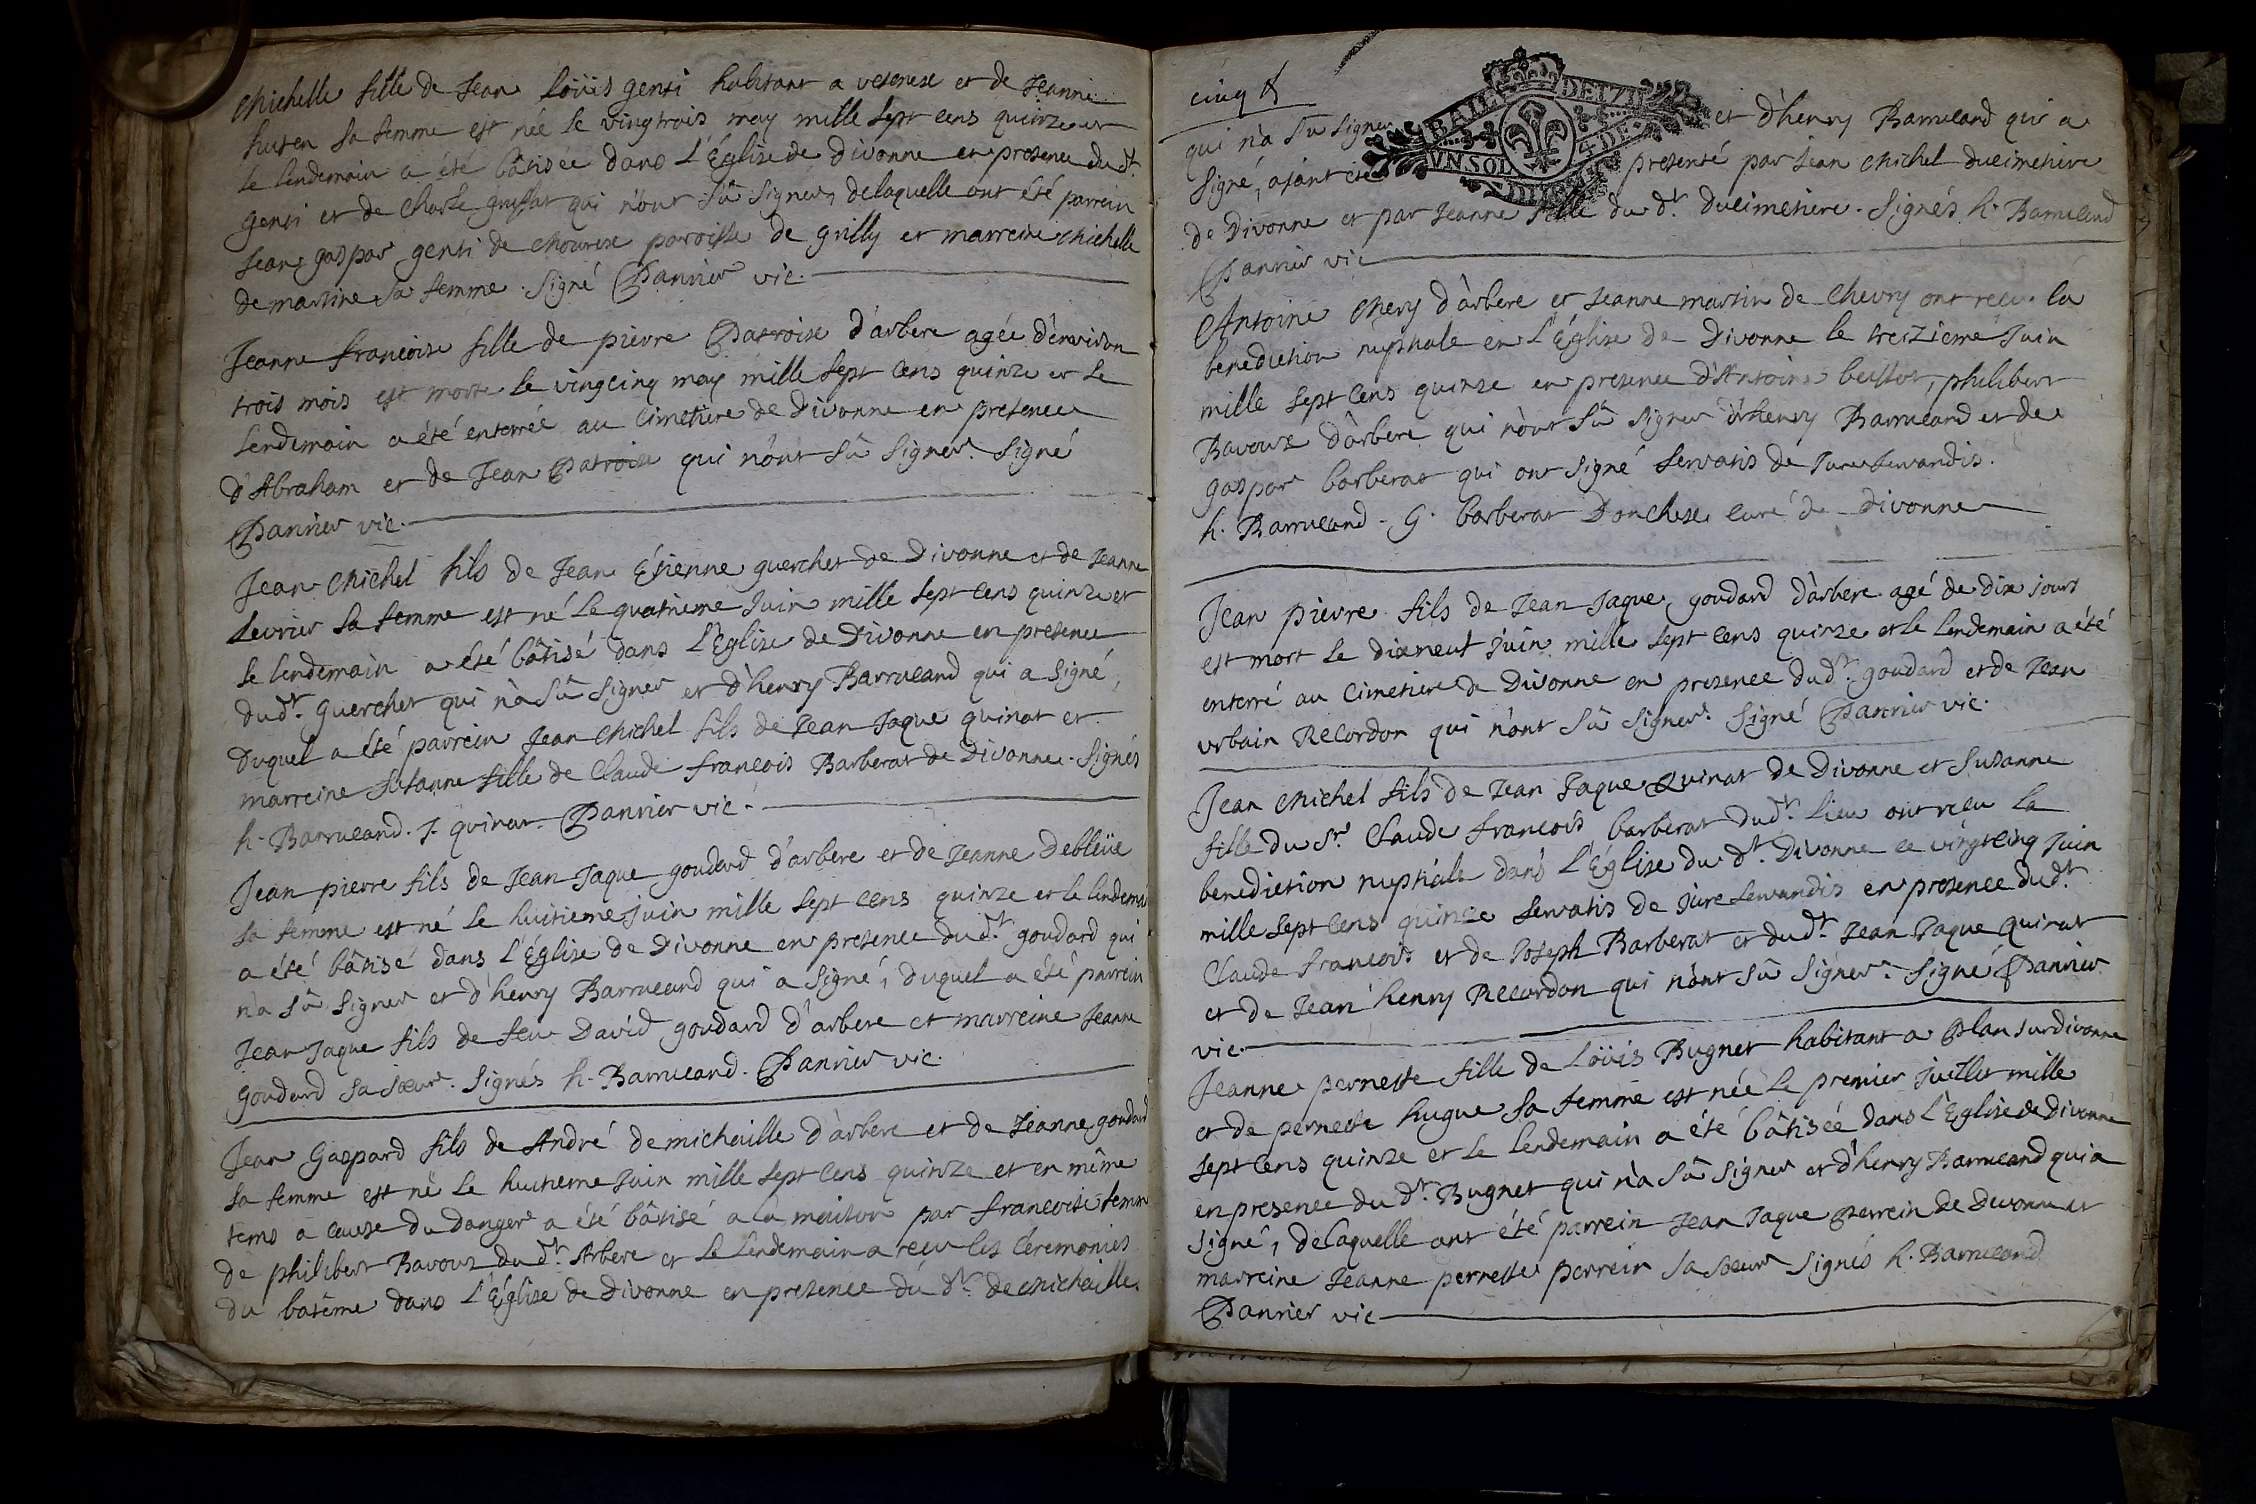 Michelle fille de Jean loüis genti habitant a vesenex et de Jeanne
huten sa femme est née le vingtrois may mille sept cens quinze et
le lendemain a été bâtisée dans L'Église de divonne en presence du dt.
genti et de Charle grussat qui n'ont sû signer, delaquelle ont été parrein
Jean gaspar genti de mourex paroisse de grilly et marreine michelle
de martine sa femme. signé Pannier vic.
Jeanne francoise fille de pierre Patroise d'arbere agée d'environ
trois mois est morte le vingcinq may mille sept cens quinze et le
lendemain a été enterrée au Cimetiere de Divonne en presence
d'Abraham et de Jean Patroise qui n'ont sû signer. signé
Pannier vic.
Jean Michel fils de Jean Étienne guerchet de Divonne et de Jeanne
Levrier sa femme est né le quatrieme Juin mille sept cens quinze et
le lendemain a été bâtisé dans L'Eglise de Divonne en presence
dudt. guerchet qui n'a sû signer et d'henry Barrucand qui a signé,
Duquel a été parrein Jean Michel fils de Jean Jaque quinat et
marreine Susanne fille de Claude francois Barberat de Divonne. signés
h. Barrucand. J. quinat. Pannier vic.
Jean pierre fils de Jean Jaque goudard d'arbere et de Jeanne Deblüe
sa femme est né le huitieme Juin mille sept cens quinze et le lendemain
a été bâtisé dans L'Église de Divonne en presence du dt. goudard qui
n'a sû signer et d'henry Barrucand qui a signé, duquel a été parrein
Jean Jaque fils de feu David goudard d'arbere et marreine Jeanne
Goudard sa soeur. signés h. Barrucand. Pannier vic.
Jean Gaspard fils de André demichaille d'àrbere et de Jeanne goudard
sa femme est né le huitieme Juin mille sept cens quinze et en même
tems a cause du danger a été bâtisé a la maison par francoise femme
de philibert Ravoux du dt. Arbere et le lendemain a reçu les Ceremonies
du batême dans L'Église de Divonne en presence du dt. de michaille
cinq
qui n'a sû signer et d'henry Barrucand qui a
BAIL DE 1711
VN SOL 4 DE.
signé, ajant été presenté par Jean Michel ducimetiere
de Divonne et par Jeanne fille du dt. ducimetiere. signés h. Barrucand
Pannier vic
Antoine Mery d'àrbere et Jeanne martin de Chevry ont reçu la
benediction nuptiale en L'Église de Divonne le treizieme Juin
mille sept cens quinze en presence d'Antoine beissot, philibert
Ravoux d'àrbere qui n'ont sû signer d'henry Barrucand et de
gaspar barberat qui ont signé servatis de Jure servandis.
h. Barrucand. G. barberat Donchese curé de Divonne
Jean pierre fils de Jean Jaque goudard d'àrbere agé de dix jours
est mort le dixneuf juin mille sept cens quinze et le lendemain a été
enterré au Cimetiere de Divonne en presence dudt. goudard et de Jean
vrbain Recordon qui n'ont sû signer. signé Pannier vic.
Jean Michel fils de Jean Jaque Quinat de Divonne et Susanne
fille du Sr. Claude francois barberat du dt. lieu ont reçu la
benediction nuptiale dans L'Église du dt. Divonne ce vingtcinq Juin
mille sept cens quinze servatis de jure servandis en presence du dt.
Claude francois et de Joseph Barberat et du dt. Jean Jaque Quinat
et de Jean henry Recordon qui n'ont sû signer. signé Pannier
vic.
Jeanne pernette fille de Loüis Bugnet habitant a Plan sur divonne
et de pernette hugue sa femme est née le premier juillet mille
sept cens quinze et le lendemain a été bâtisée dans L'Eglise de Divonne
en presence du dt. Bugnet qui n'a sû signer et d'henry Barrucand qui a
signé, delaquelle ont été parrein Jean Jaque perrein de Divonne et
marreine Jeanne pernette perrein sa soeur signés h. Barrucand
Pannier vic